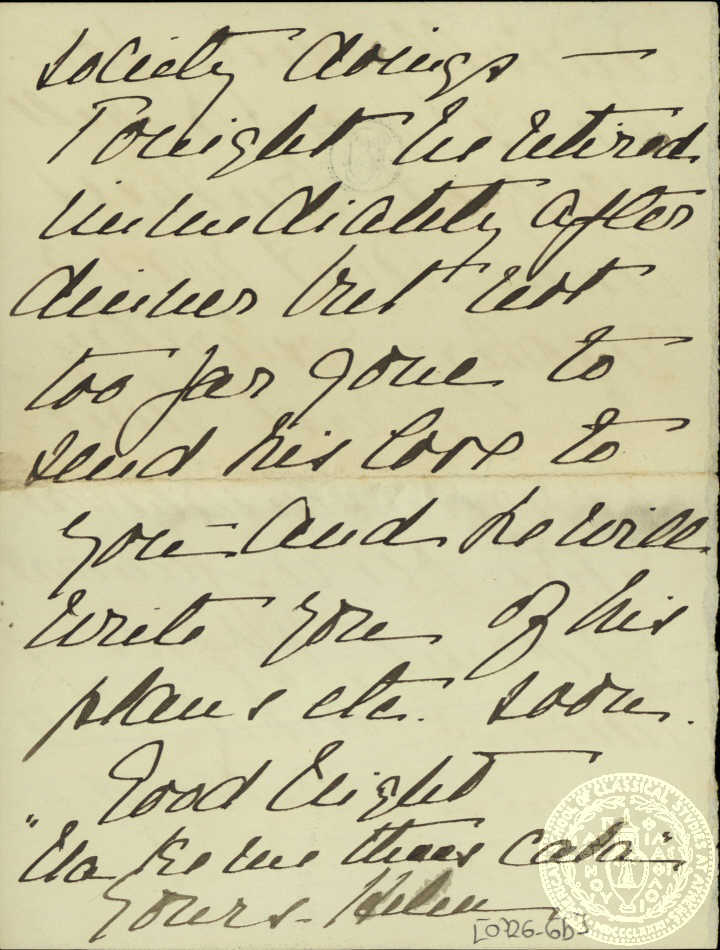 society doings —
Tonight he retired
immediately after
dinner but not
too far gone to
send his love to
you — and he will
write you of his
plans etc. soon.
Good Night
Yours - Helen
[0726-6b]